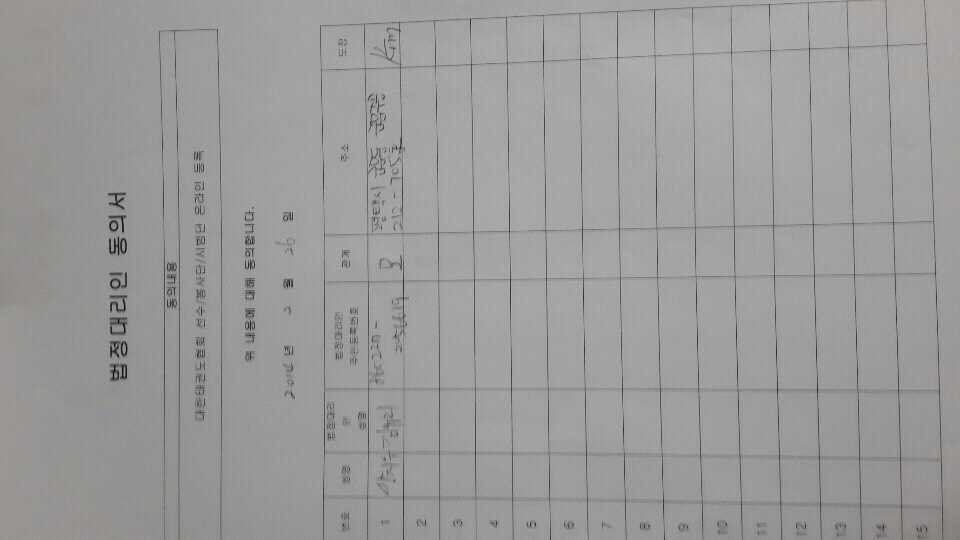 법정대리인 동의서
동의내용
대한태권도협회 선수/봉사단/시범단 온라인 등록
위 내용에 대해 동의합니다.
년 2 월 26 일
번호 성명 법정대리인 성명 법정대리인 주민등록번호 관계 주소 도장
1 모 평택시 Kim
212-705호
2
3
4
5
6
7
8
9
10
11
12
13
14
15